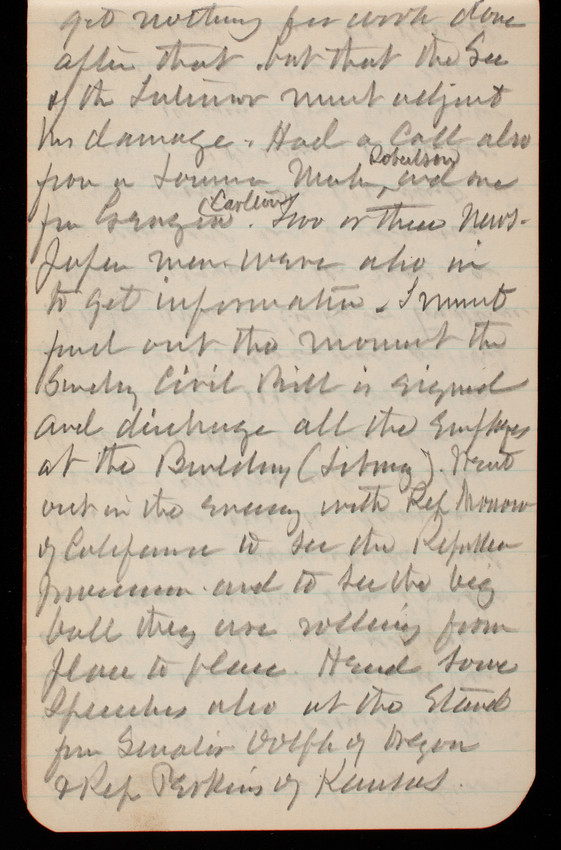 get nothing for work done
after that but that the Sec
of the Interior must adjust
his damage. Had a Call also
from a Louisiana Robertson, and one
fm Georgia (Carlton). Two or three News-
paper men were also in
to get information. I must
find out the moment the
Sundry Civil Bill is signed
and discharge all the Employes
at the Building (Library). Went
out in the evening with Rep Morrow
of California to see the Repblcn
procession and to see the big
ball they are rolling from
place to place. Heard some
Speeches also at the Stand
fm Senator Dolph of Oregon
& Rep Perkins of Kansas.